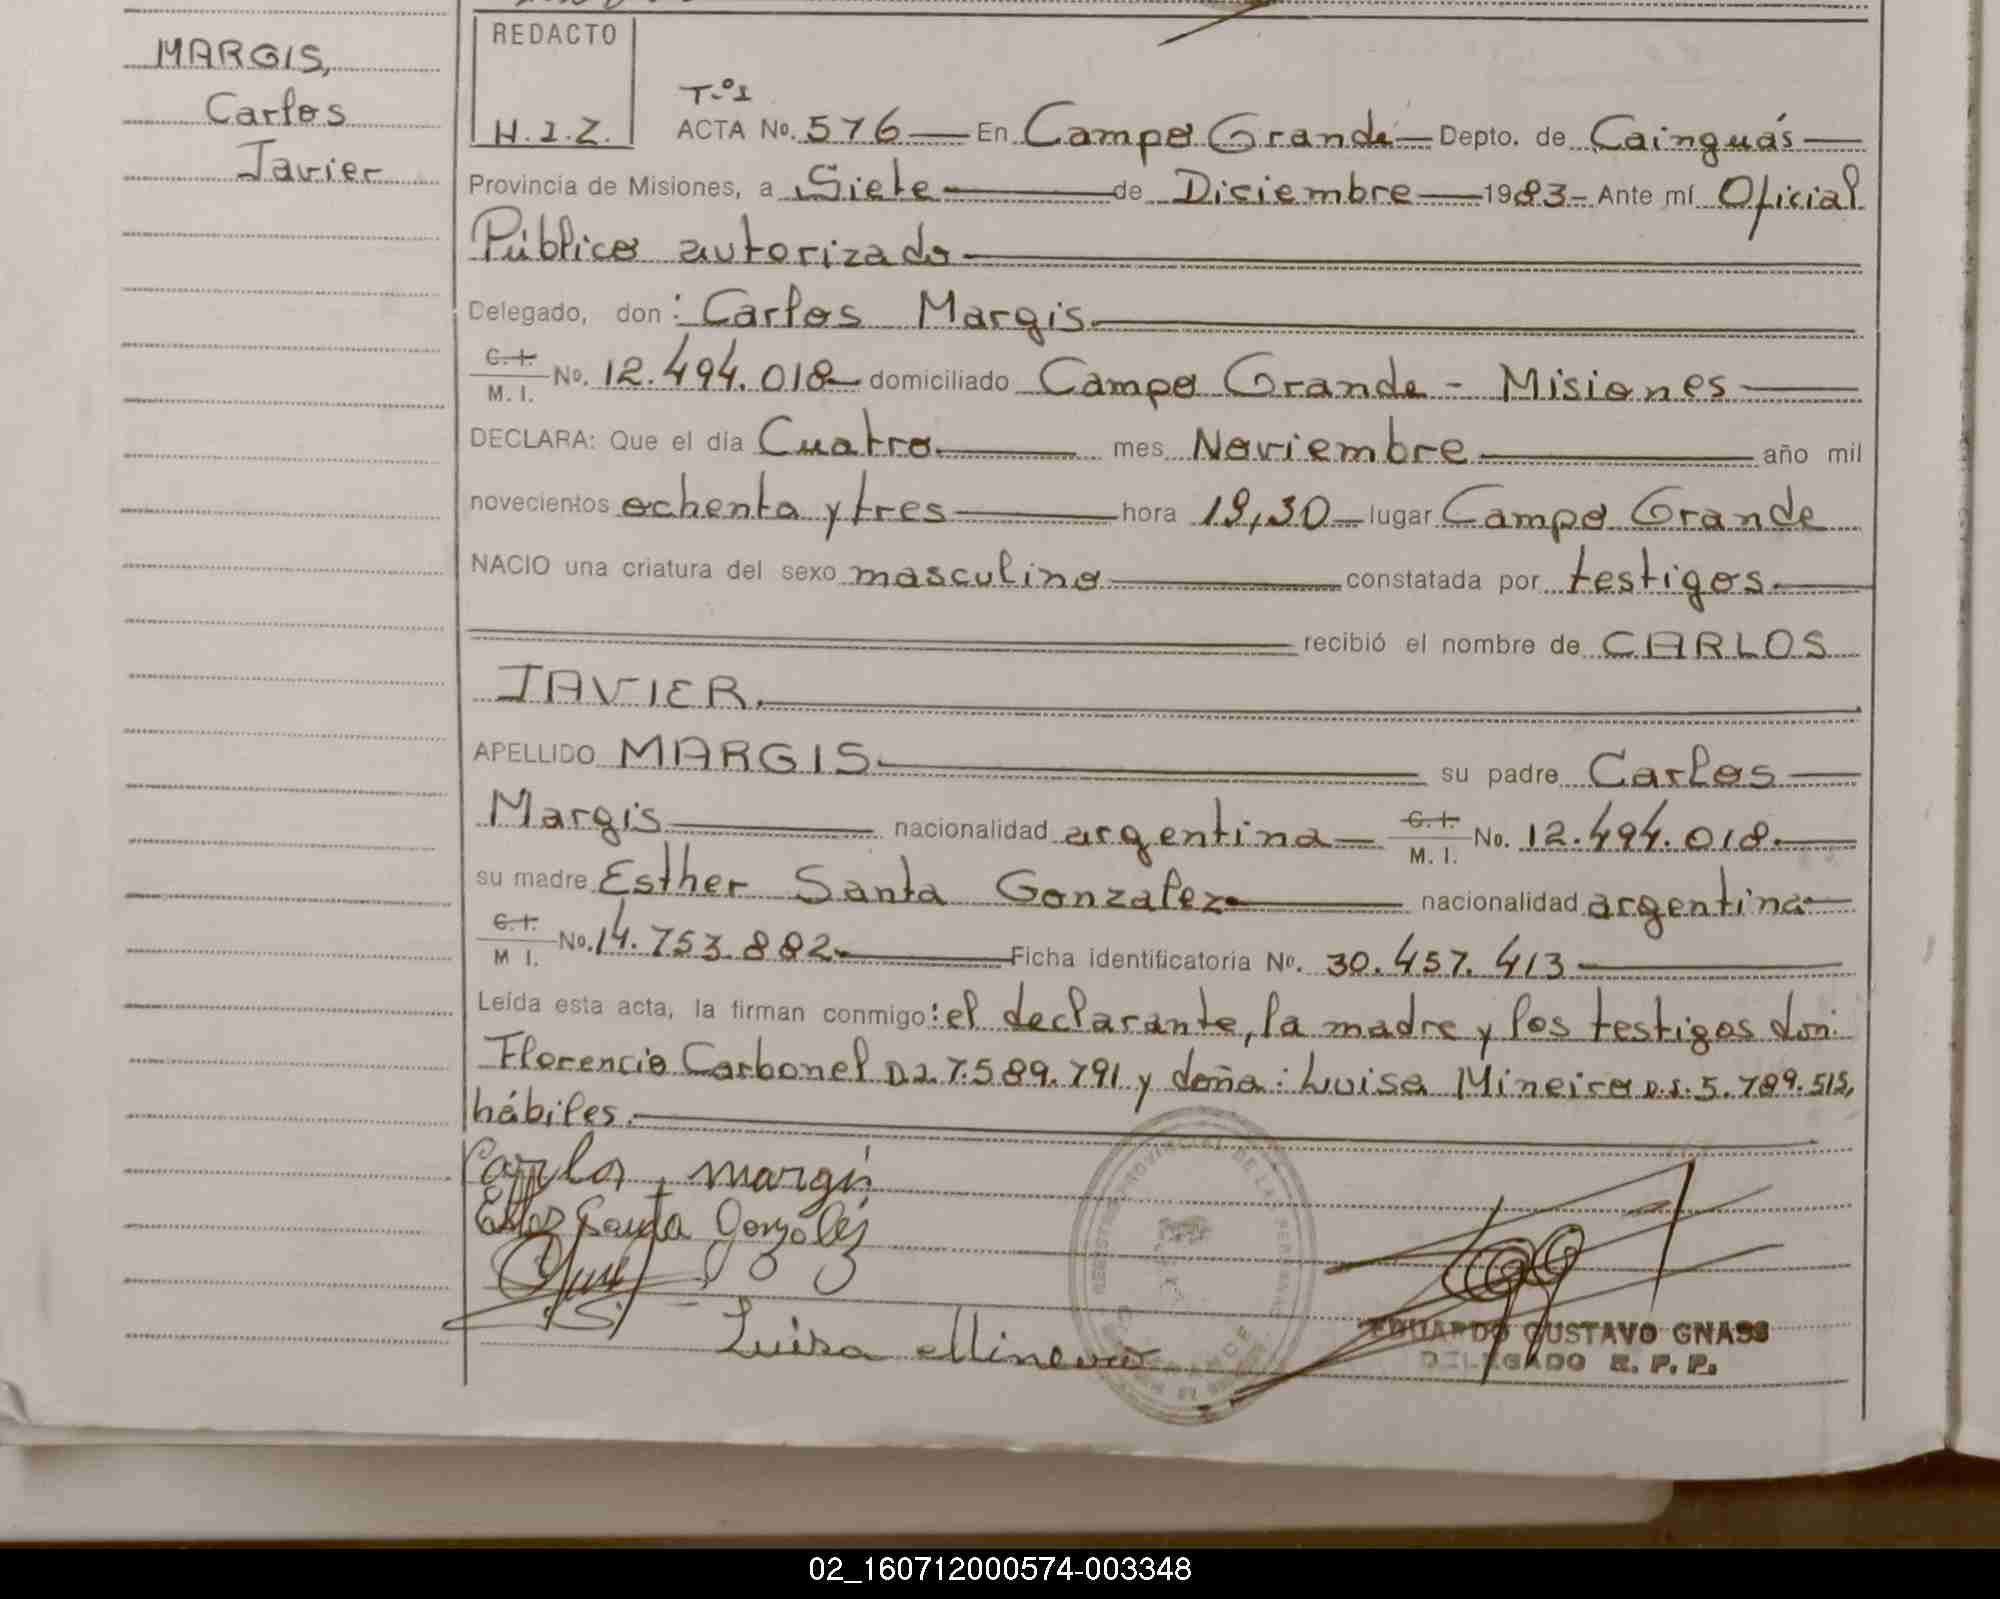 MARGIS,
Carlos
Javier
REDACTO
H.I.Z.
T.º1
ACTA Nº. 576 En Campo Grande Depto. de Cainguás
Provincia de Misiones, a Siete de Diciembre 1983- Ante mí Oficial
Público autorizado
Delegado, don: Carlos Margis
C.I. M. I. Nº. 12.494.018 domiciliado Campo Grande - Misiones
DECLARA: Que el día Cuatro mes Noviembre año mil
novecientos ochenta y tres hora 19,30 lugar Campo Grande
NACIO una criatura del sexo masculino constatada por testigos.
recibió el nombre de CARLOS
JAVIER.
APELLIDO MARGIS su padre Carlos
Margis nacionalidad argentina C.I. M. I. Nº. 12.494.018.
su madre Esther Santa Gonzalez nacionalidad argentina
C.I. M I. Nº. 14.753.882 Ficha identificatoria Nº. 30.457.413
Leída esta acta, la firman conmigo: el declarante, la madre y los testigos don:
Florencio Carbonel D.I. 7.589.791 y doña: Luisa Mineiro D.I. 5.789.515,
hábiles.
Carlos Margis
Santa González
Luisa
EDUARDO GUSTAVO GNASS
DELEGADO R. P. P.
02_160712000574-003348